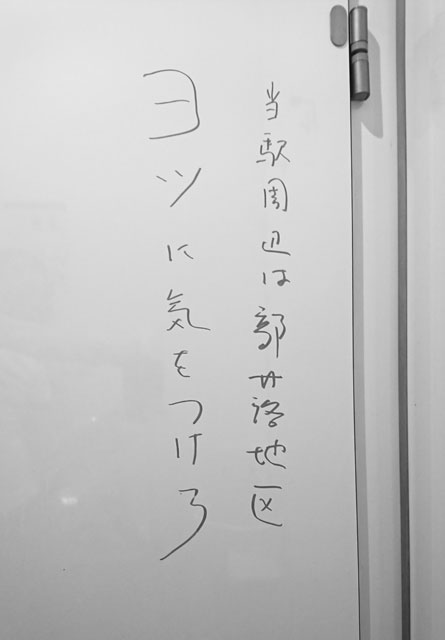 当駅周辺は部落地区
ヨツに気をつけろ